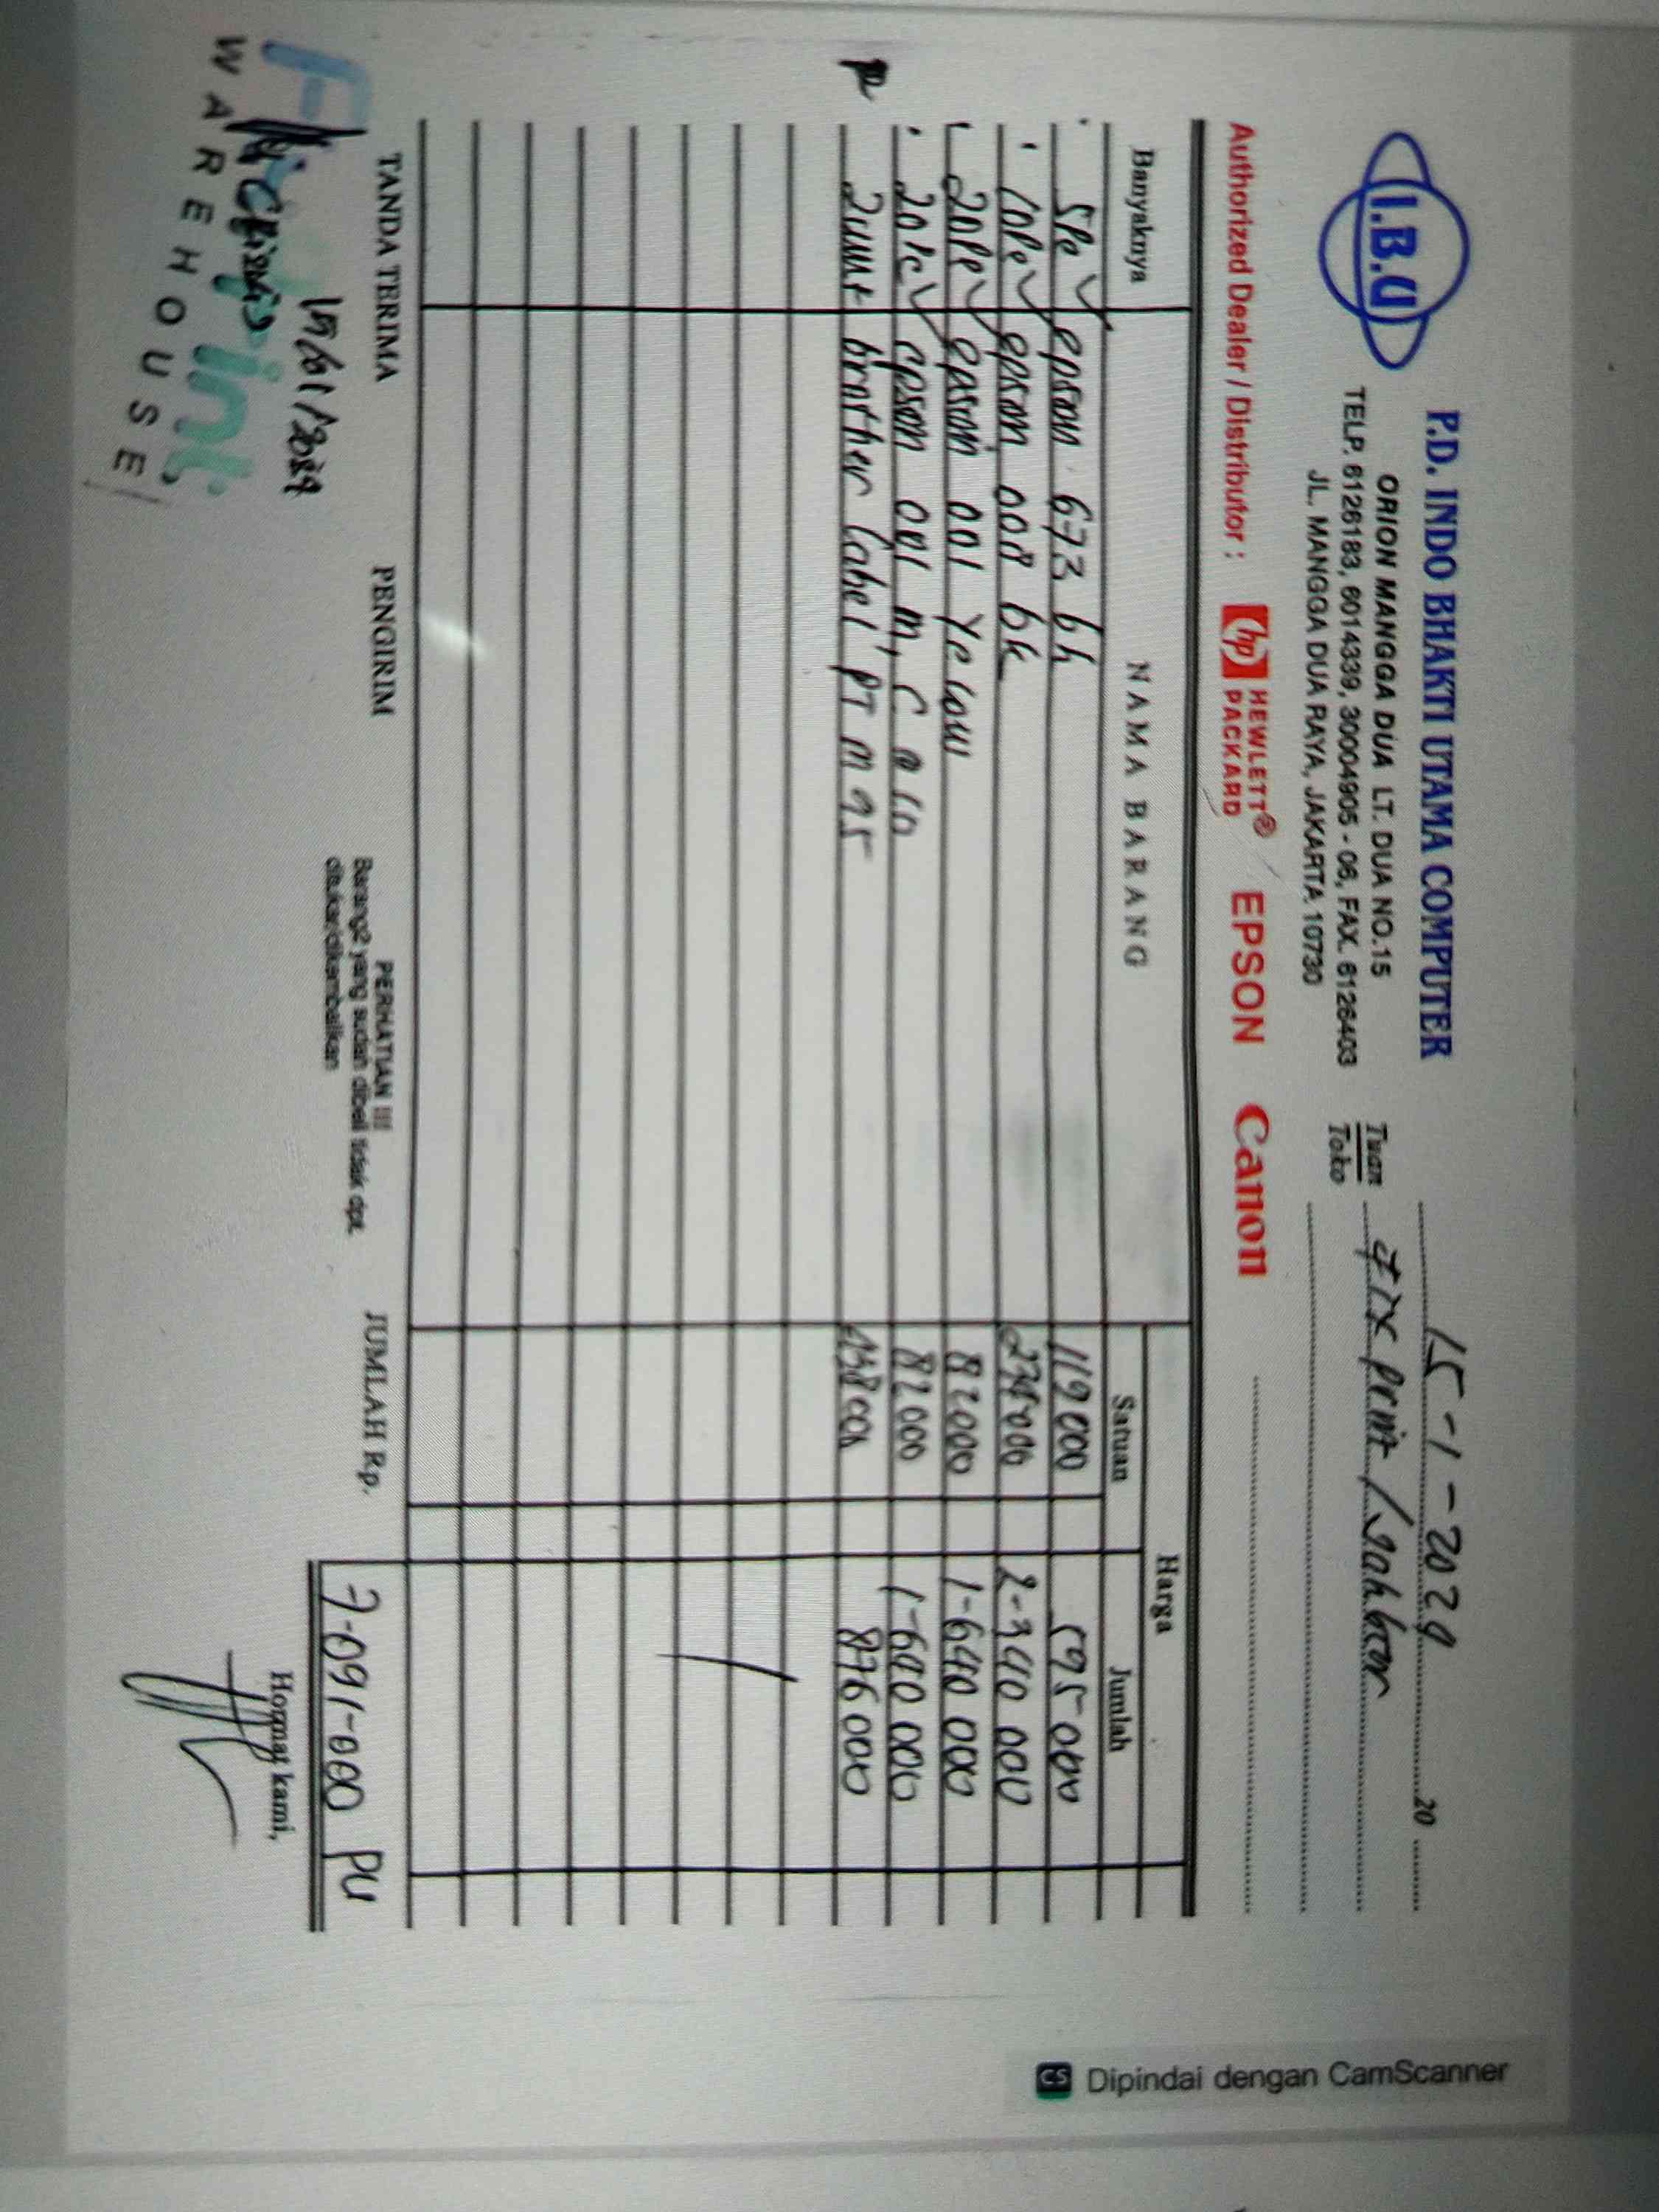 I.B.U
P.D. INDO BHAKTI UTAMA COMPUTER
ORION MANGGA DUA LT. DUA NO.15
TELP. 6126183, 6014339, 30004905 - 06, FAX. 6126403
JL. MANGGA DUA RAYA, JAKARTA 10730
15-1-2024 20
Tuan
Toko
Fix print /
Authorized Dealer / Distributor : hp HEWLETT® PACKARD EPSON Canon
Banyaknya NAMA BARANG Harga
Satuan Jumlah
5Pc epson 673 bk 119 000 595 000
10Pc epson 008 bk 234 000 2-340 000
20Pc epson 001 Yellow 82 000 1-640 000
20Pc epson 001 m, C @ 10 82 000 1-640 000
2unit brother Label PT M 95 438 000 876 000
TANDA TERIMA PENGIRIM
PERHATIAN !!!
Barang2 yang sudah dibeli tidak dpt.
ditukar/dikembalikan
JUMLAH Rp. 7-091-000 PU
Hormat kami,
WAREHOUSE
CS Dipindai dengan CamScanner